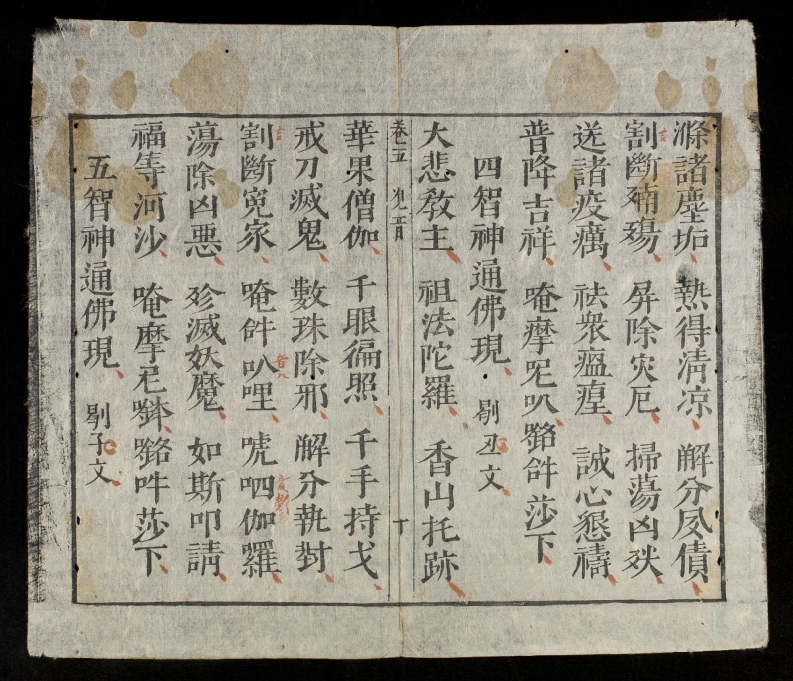 滌諸塵垢、熱得清凉、解分夙債、
割斷𣨶殤、屏除灾厄、掃蕩凶殃、
送諸疫癘、祛衆瘟瘟、誠心懇禱、
普降吉祥、唵摩呢叭、㗉𤙖莎下、
四智神通佛現、刷丑文、
大悲教主、祖法陀羅、香山托跡、
卷五
華果僧伽、千眼徧照、千手持戈、
戒刀滅鬼、數珠除邪、解分執對、
割斷冤家、唵𤙖叭哩、唬呬伽羅、
蕩除凶惡、殄滅妖魔、如斯叩請、
福等河沙、唵摩尼𠺗、㗉吽莎下、
五智神通佛現、刷子文、